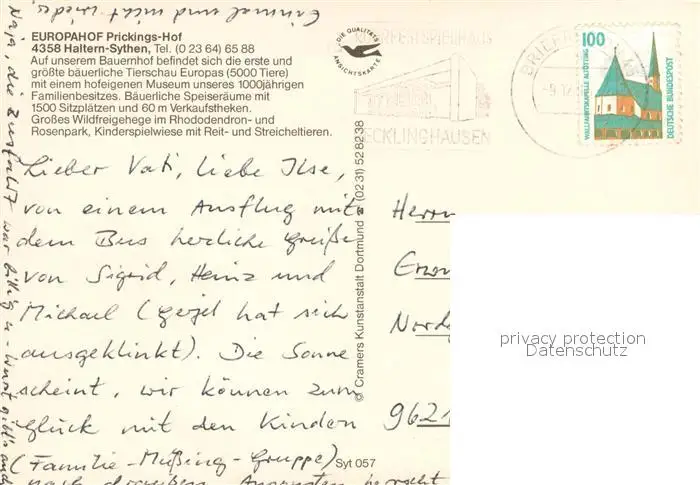 EUROPAHOF Prickings-Hof
4358 Haltern-Sythen, Tel. (0 23 64) 65 88
Auf unserem Bauernhof befindet sich die erste und
größte bäuerliche Tierschau Europas (5000 Tiere)
mit einem hofeigenen Museum unseres 1000jährigen
Familienbesitzes. Bäuerliche Speiseräume mit
1500 Sitzplätzen und 60 m Verkaufstheken.
Großes Wildfreigehege im Rhododendron- und
Rosenpark, Kinderspielwiese mit Reit- und Streicheltieren.
Lieber Vati, liebe Ilse,
von einem Ausflug mit
dem Bus herliche Grüße
von Sigrid, Heinz und
Michael ( hat sich
ausgeklinkt). Die Sonne
scheint, wir können zum
Glück mit den Kindern
(Familie-Müßing-Gruppe)
nach draußen. herrscht
Naja, die Zufahrt war billig u. Wurst gibt's auch
einmal und nicht wieder
© Cramers Kunstanstalt Dortmund ☎ (02 31) 52 82 38
Syt 057
DIE QUALITÄTS
ANSICHTSKARTE
RUHRFESTSPIELHAUS
RECKLINGHAUSEN
BRIEFZENTRUM
100
WALLFAHRTSKAPELLE ALTÖTTING
DEUTSCHE BUNDESPOST
Herrn
Nord
9621
privacy protection
Datenschutz